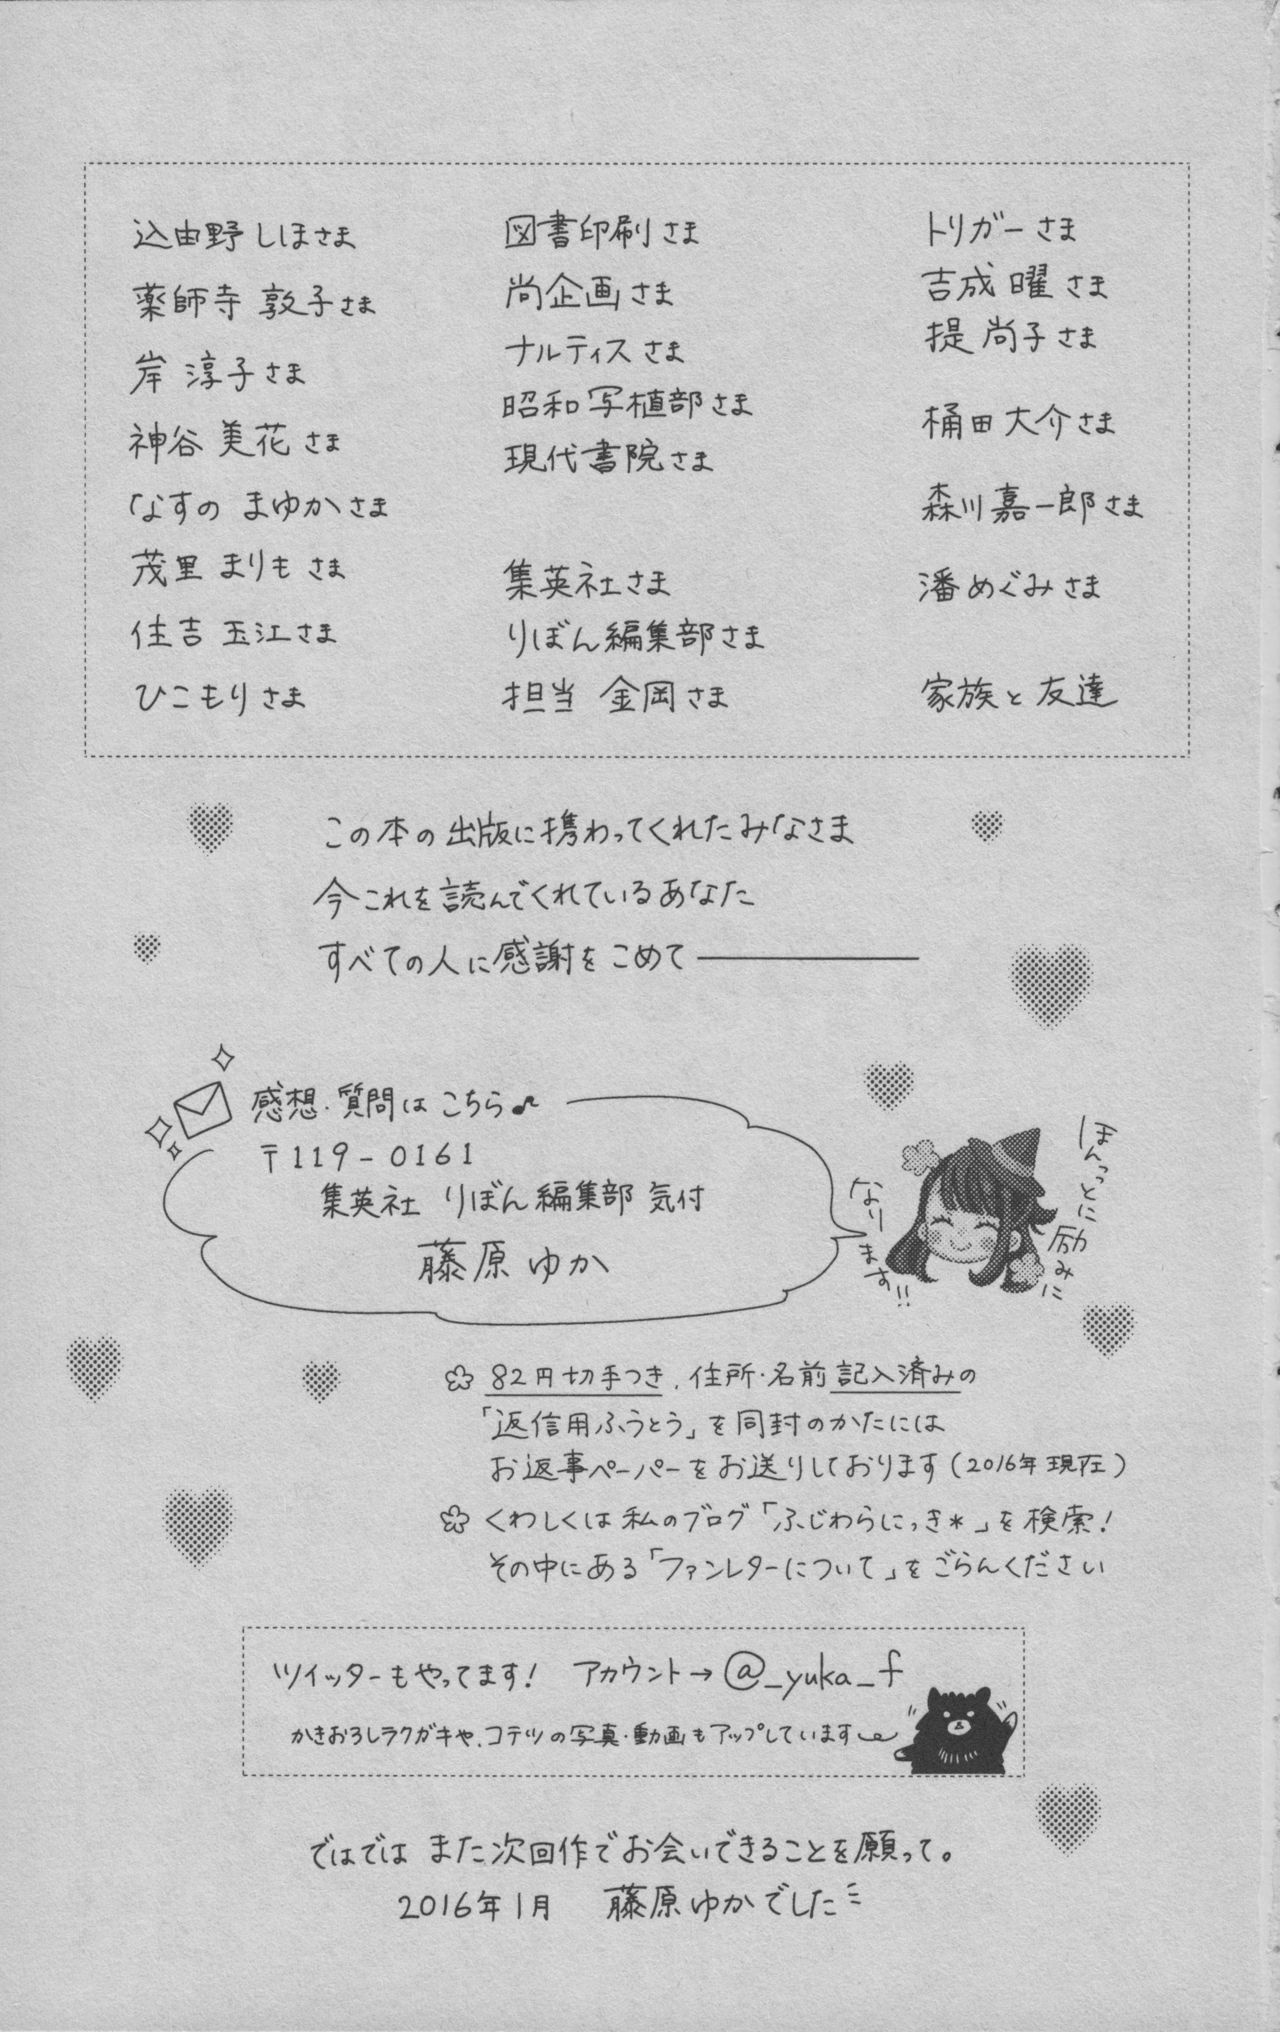 込由野 しほさま
薬師寺 敦子さま
岸 淳子さま
神谷 美花さま
なすの まゆかさま
茂里 まりもさま
住吉 玉江さま
ひこもりさま
図書印刷さま
尚企画さま
ナルティスさま
昭和写植部さま
現代書院さま
集英社さま
りぼん編集部さま
担当 金岡さま
トリガーさま
吉成 曜さま
堤 尚子さま
桶田 大介さま
森川 嘉一郎さま
潘 めぐみさま
家族と友達
この本の出版に携わってくれたみなさま
今これを読んでくれているあなた
すべての人に感謝をこめて――――
感想・質問はこちら♪
〒119-0161
集英社 りぼん編集部 気付
藤原ゆか
ほんっとに
励みに
なります!!
✿ 82円切手つき、住所・名前記入済みの
「返信用ふうとう」を同封のかたには
お返事ペーパーをお送りしております(2016年現在)
✿ くわしくは私のブログ「ふじわらにっき*」を検索!
その中にある「ファンレターについて」をごらんください
ツイッターもやってます! アカウント→@_yuka_f
かきおろしラクガキや、コテツの写真・動画もアップしています
ではでは また次回作でお会いできることを願って。
2016年1月 藤原ゆかでした